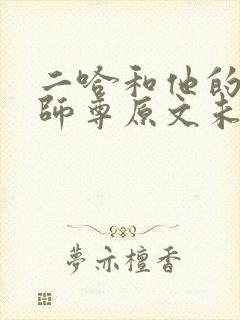 二哈和他的
師尊原文未
夢亦檀香